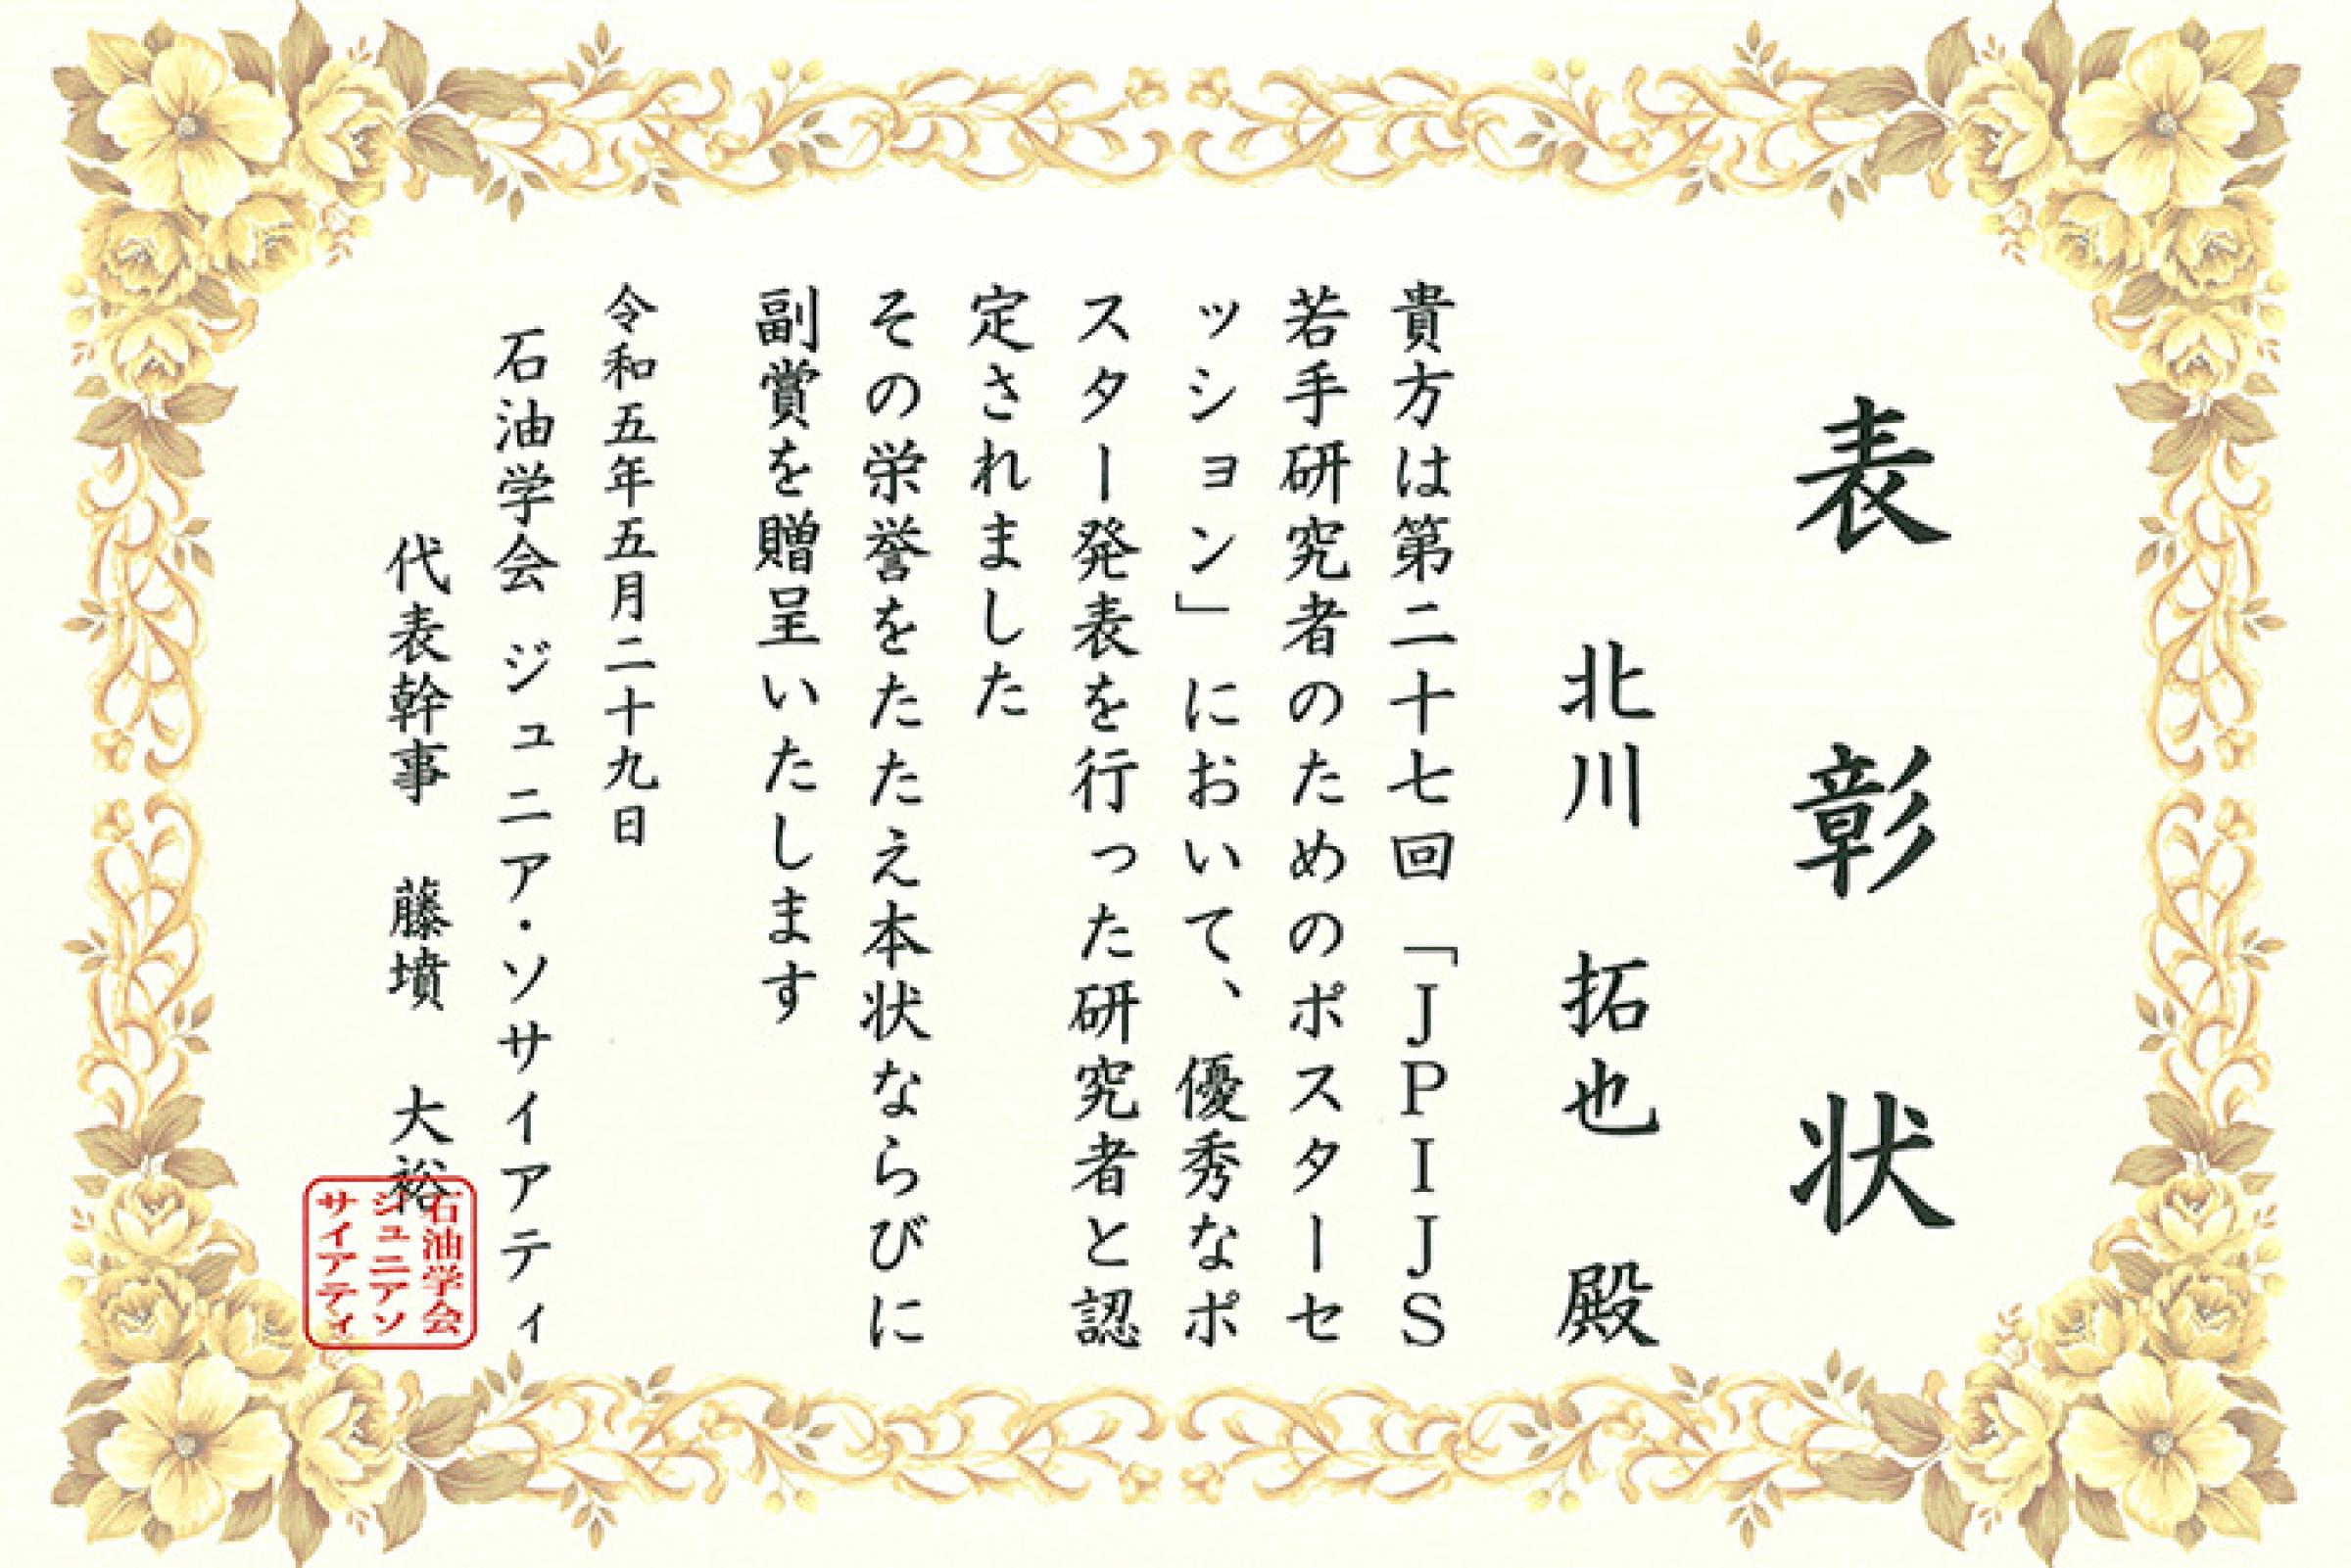 表彰状
北川 拓也 殿
貴方は第二十七回「JPIJS
若手研究者のためのポスターセ
ッション」において、優秀なポ
スター発表を行った研究者と認
定されました
その栄誉をたたえ本状ならびに
副賞を贈呈いたします
令和五年五月二十九日
石油学会 ジュニア・ソサイアティ
代表幹事 藤墳 大裕
石油学会
ジュニアソ
サイアティ